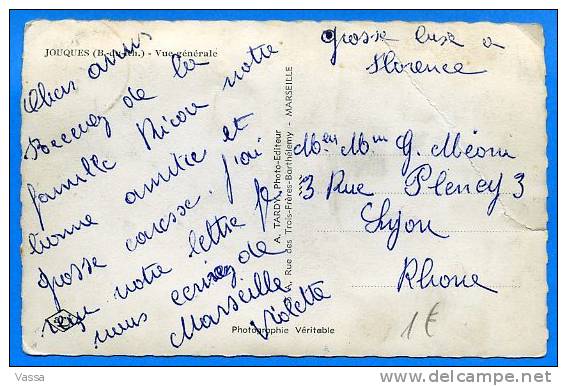 JOUQUES (B.-du-Rh.) - Vue générale
Chers amis
Recevez de la
famille Ricou notre
bonne amitié et
grosse caresse. j'ai
reçu notre lettre je
vous écrirez de
Marseille
Violette
A. TARDY, Photo-Editeur
Rue des Trois-Frères-Barthélemy - MARSEILLE
Photographie Véritable
grosse bise a
Florence
Mr et Mm G. Méoni
3 Rue Pleney 3
Lyon
Rhone
1€
Vassa
http://www.delcampe.net